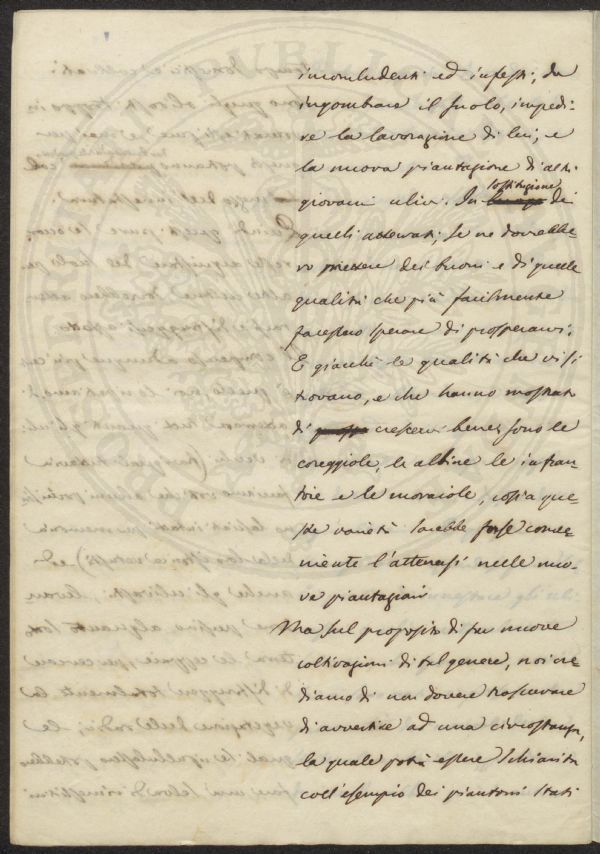 inconcludenti ed infesti, da
ingombrare il suolo, impedi-
re la lavorazione di lui, e
la nuova piantagione di altri
giovani ulivi. In sostituzione di
quelli atterrati, se ne dovrebbe-
ro mettere dei buoni e di quelle
qualità che più facilmente
facessero sperare di prosperarvi.
E giacchè le qualità che vi si
trovano, e che hanno mostrato
di crescervi bene, sono le
coreggiole, le albine le infran-
toie e le moraiole, così a que-
ste varietà sarebbe forse conve-
niente l'attenersi nelle nuo-
ve piantagioni
Ma sul proposito di far nuove
coltivazioni di tal genere, noi cre-
diamo di non dovere trascurare
di avvertire ad una circostanza,
la quale potrà essere schiarita
coll'esempio dei piantoni stati